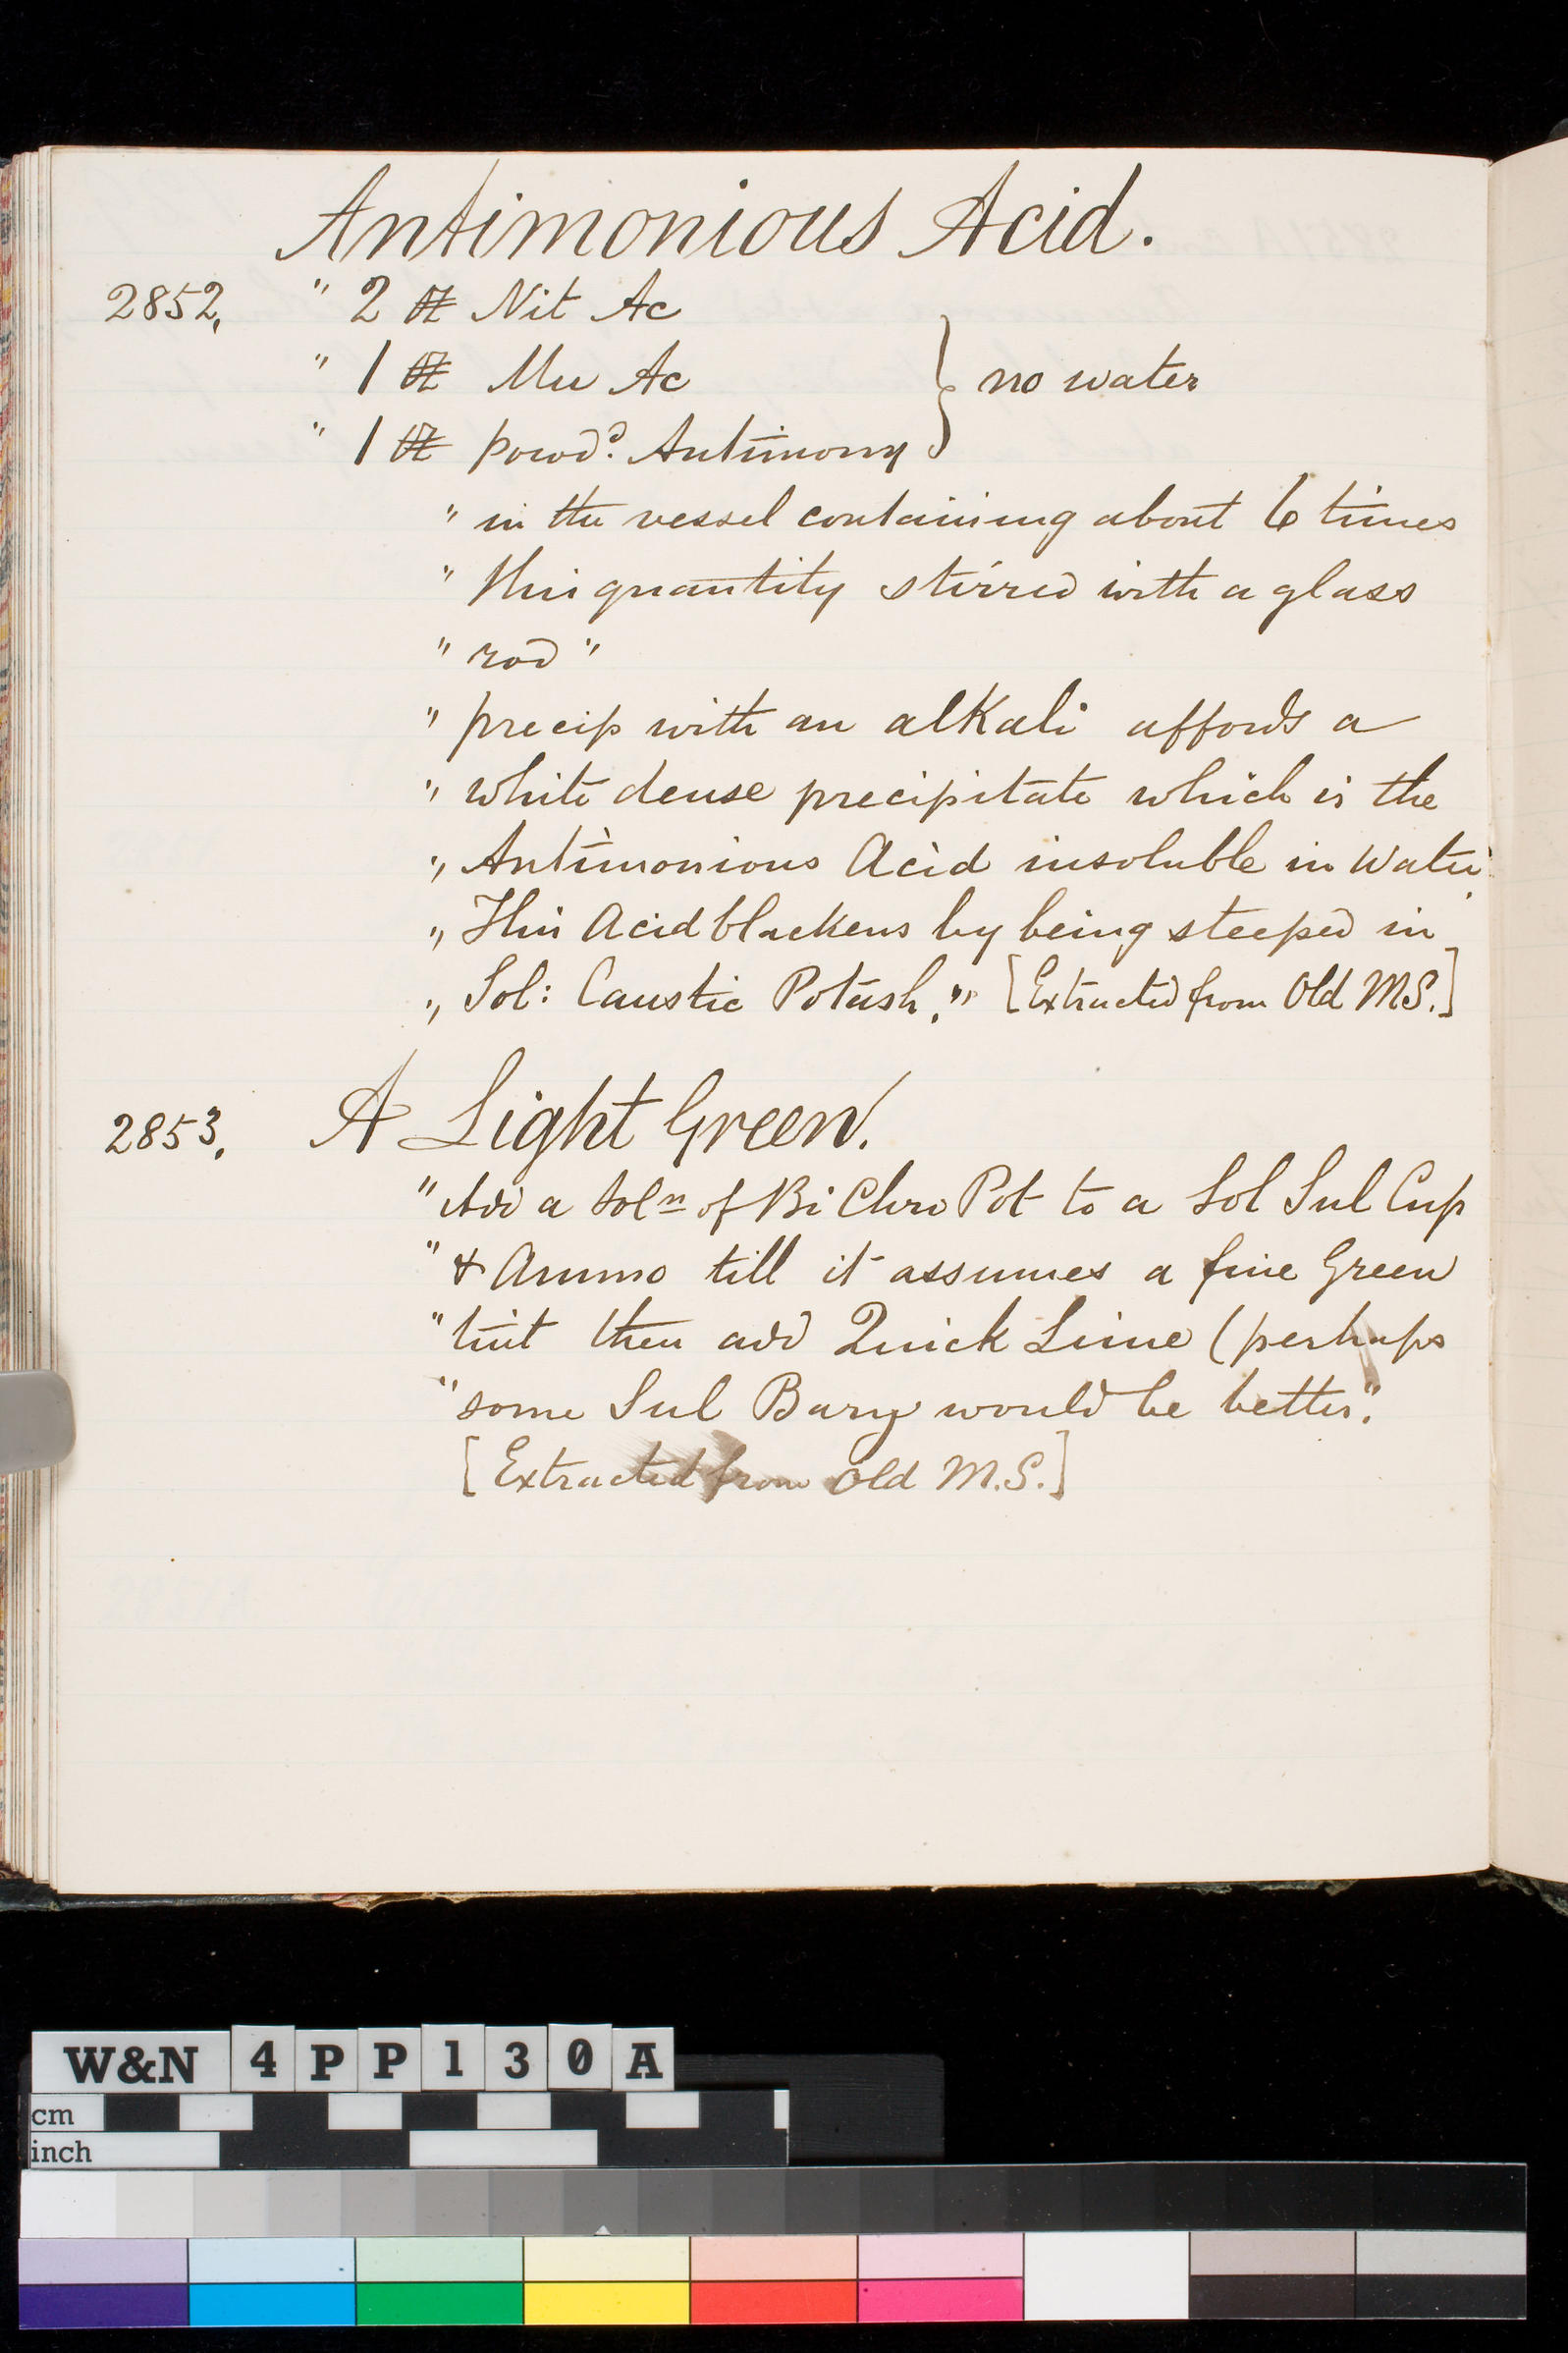 Antimonious Acid.
2852, " 2 ℔ Nit Ac
" 1 ℔ Mu Ac } no water
" 1 ℔ powd. Antimony
" in the vessel containing about 6 times
" this quantity stirred with a glass
" rod "
" precip with an alkali affords a
" white dense precipitate which is the
" Antimonious Acid insoluble in Water
" This Acid blackens by being steeped in
" Sol: Caustic Potash." [Extracted from Old MS.]
2853, A Light Green.
" Add a Soln of Bi Chro Pot to a Sol Sul Cup
" & Ammo till it assumes a fine Green
" tint then add Quick Lime (perhaps
" some Sul Bary would be better."
[Extracted from Old M.S.]
W&N 4PP130A
cm
inch